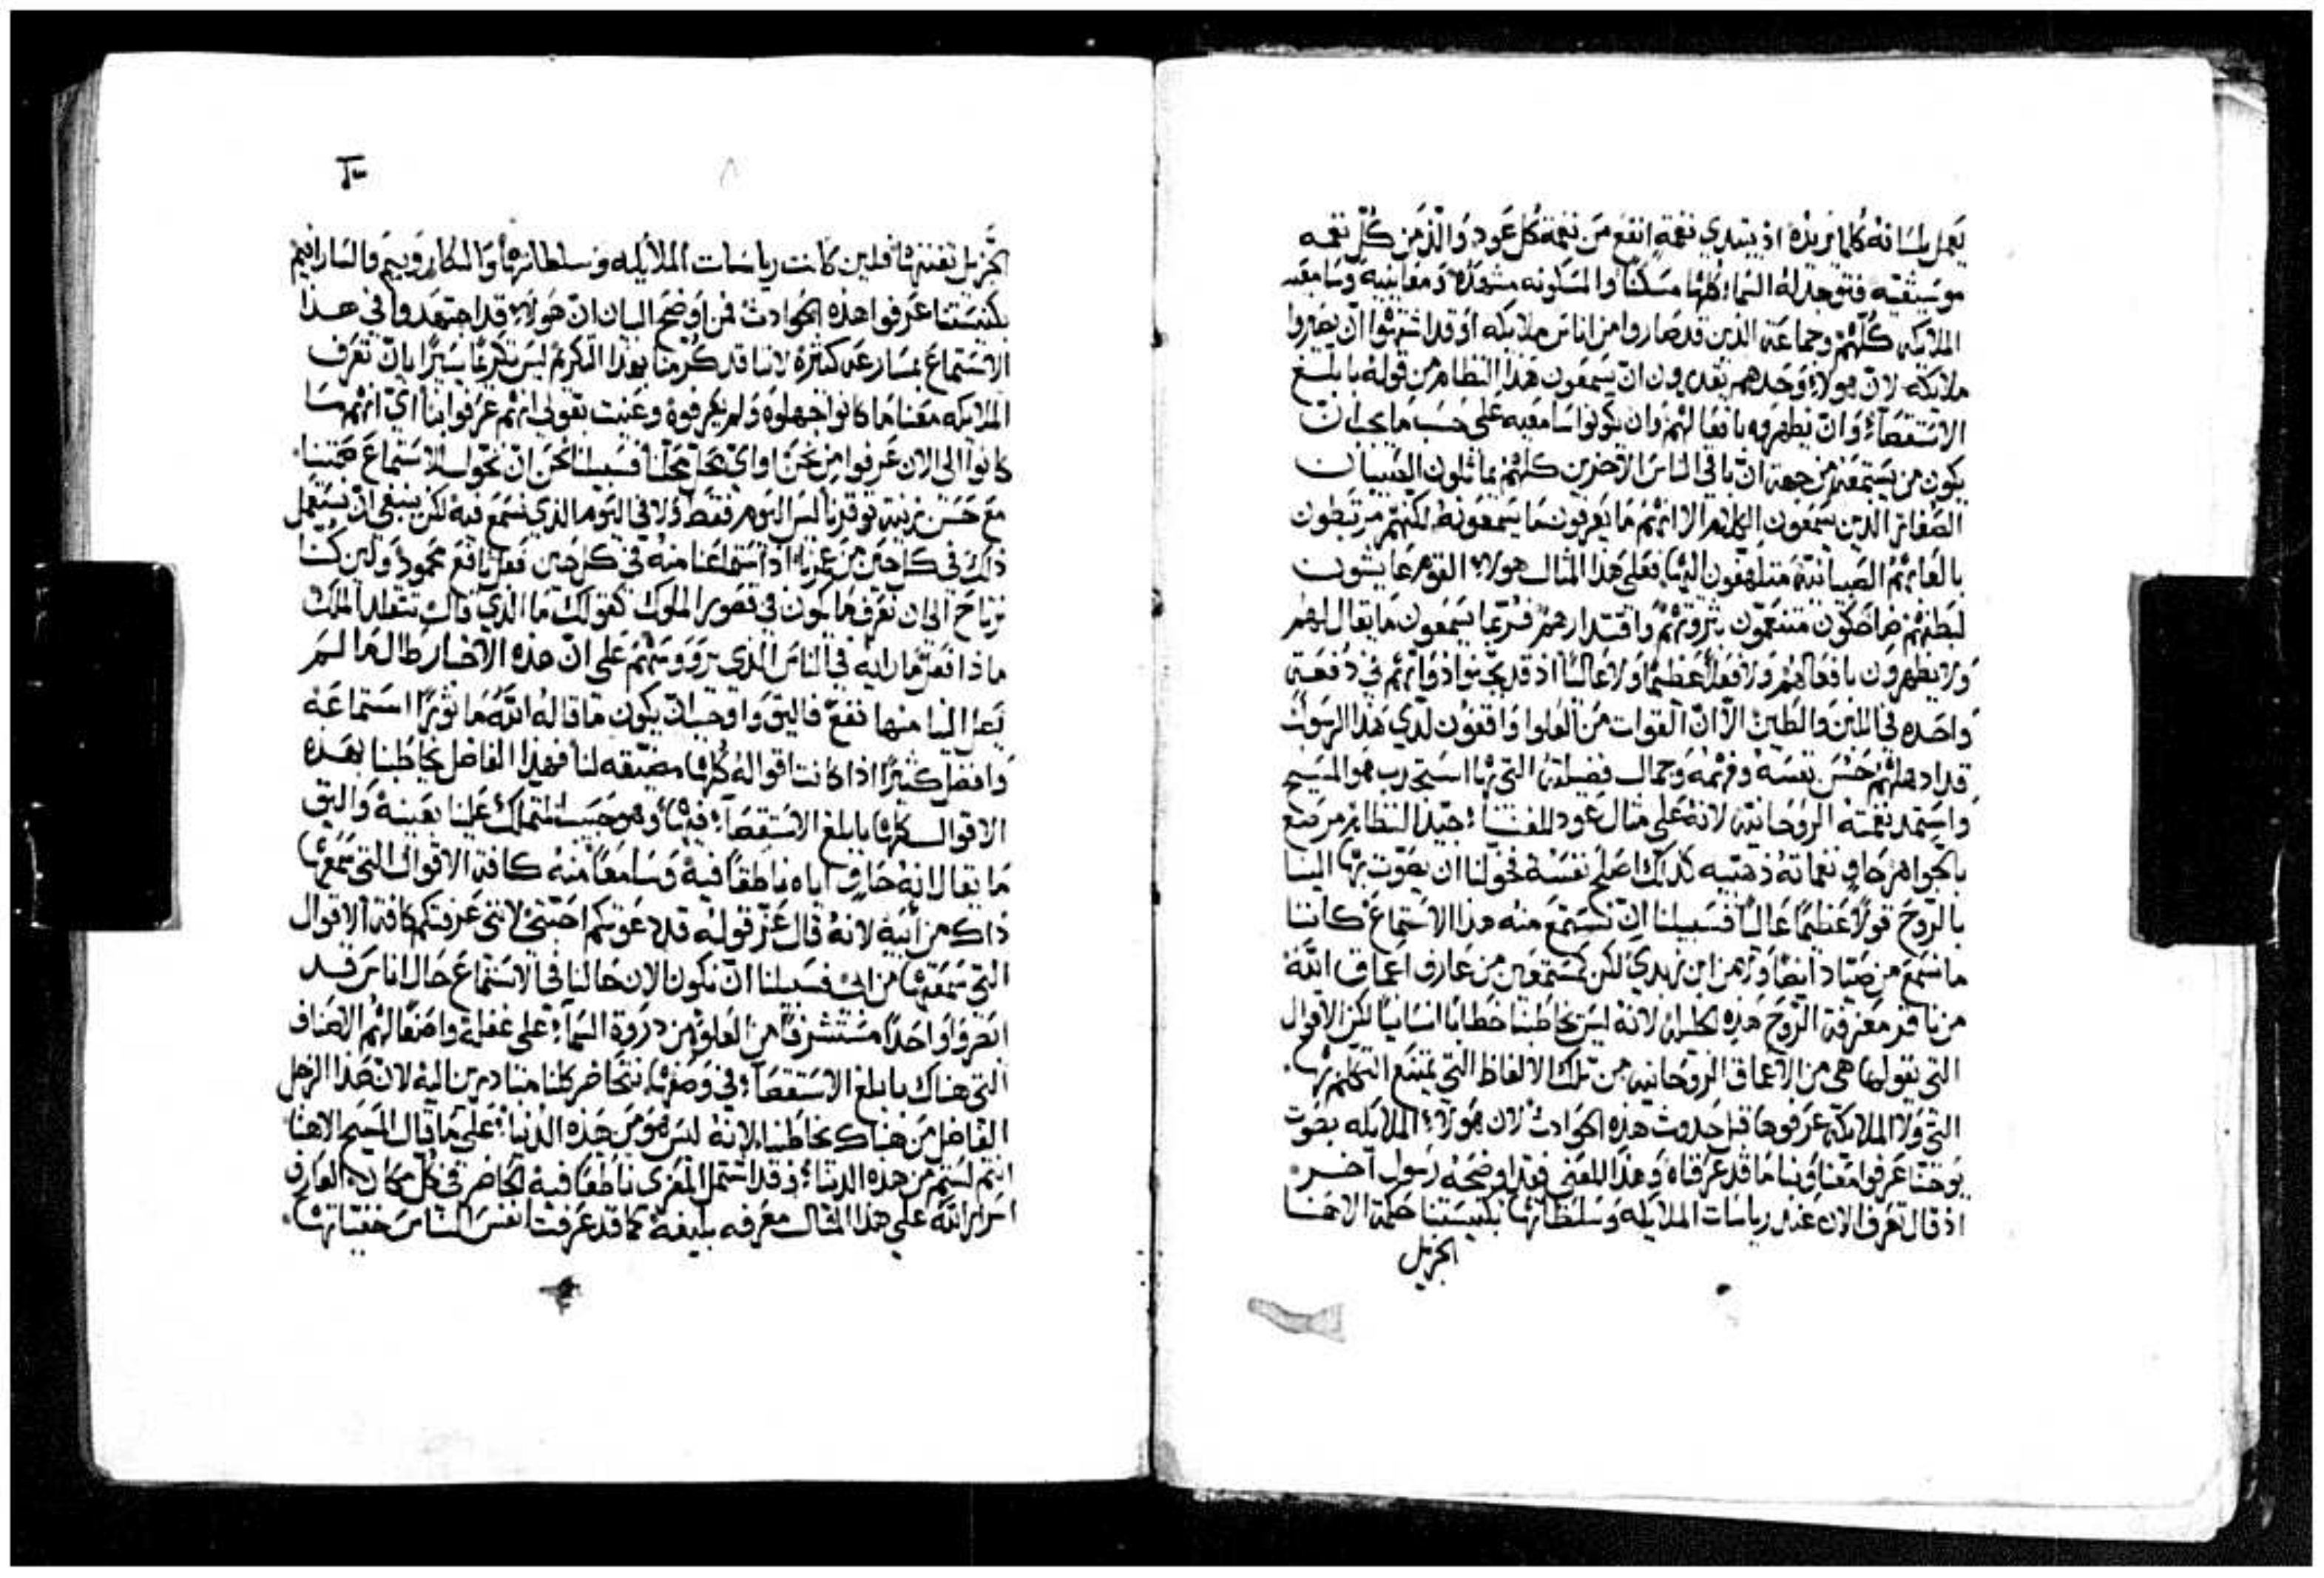 يعمل بلسانه كلما يريده اذ يبتدي نغمة انفع من نغمة كل عود والذ من كل نغمه
موسيقيه فتوجد له السماء كلها مسكنًا والمسكونه مشهدًا ومعاينيه وسامعيه
الملايكه كلهم وجماعة الذين قد صاروا من اناس ملايكه او قد اشتهوا ان يصيروا
ملايكه لان هولاء وحدهم يقدرون ان يسمعون هذا النظام من قوله بابلغ
الاستقصاء وان يظهروه بافعالهم وان يكونوا سامعيه على حسب ما يجب ان
يكون من يستمعه من جهة ان باقي الناس الاخرين كلهم يماثلون الصبيان
الصغائر الذين يسمعون الكلام الا انهم ما يعرفون ما يسمعونه لكنهم مرتبطون
بالعابهم الصبيانية متلهفون اليها فعلى هذا المثال هولاء القوم عايشون
لبطنهم ضاحكون متنعمون بثروتهم واقتدارهم فربما يسمعون ما يقال لهم
ولا يظهرون بافعالهم ولا فعلاً عظيمًا ولا عاليًا اذ قد ذواتهم في دفعة
واحده في اللبن والطين الا ان القوات من العلوا واقفون لدي هذا الرسول
قد ادهلهم حسن نفسه وفهمه وجمال فضيلته التي بها استجدب هو المسيح
واستمد نعمته الروحانية لانه على مثال عود للغناء جيد النظام مرصع
بالجواهر حاوٍ نغماته ذهبيه كذلك اصلح نفسه فخولنا ان يصوت بها الينا
بالروح قولاً عظيمًا عاليًا فسبيلنا ان نستمع منه هذا الاستماع كاننا
ما نسمع من صياد ايضًا ولا من ابن زبدي لكن كمستمعين من عارف اعماق الله
من معرفة الروح هذه لانه ليس يخاطبنا خطابًا انسانيًا لكن الاقوال
التي يقولها هي من الاعماق الروحانيه من تلك الالفاظ التي يمتنع التكلم بها.
التي ولا الملايكة عرفوها قبل حدوث هذه الحوادث لان هولاء الملايكه بصوت
يوحنا عرفوا معنا وبنا ما قد عرفناه وهذا المعنى فقد اوضحه رسول آخر.
اذ قال تعرف الان عند رياسات الملايكه وسلطاتها بكنيستنا حكمة الاهنا
الجزيل
الجزيل تفننها فلين كانت رياسات الملايكه وسلطاتها والكاروبيم والسارافيم
بكنيستنا عرفوا هذه الحوادث فمن اوضح البيان ان هولاء قد اجتهدوا في هذا
الاستماع بمسارعه كثيره لاننا قد كرمنا بهذا التكريم ليس تكريمًا يسيرًا بان تعرف
الملايكه معنا ما كانوا جهلوه ولم يعرفوه وعنيت بقولي انهم عرفوا بنا اي انهم ما
كانوا الى الان عرفوا من نحن او اي محل محلنا فسبيلنا نحن ان نخول الاستماع صمتنا.
مع حسن ترتيب توقرنا ليس اليوم فقط ولا في اليوم الذي نسمع فيه لكن ينبغي ان نستعمل
ذلك في كل حين من عمرنا اذ استماعنا منه في كل حين فعل نافع محمود ولين كنا
نرتاح الى ان نعرف ما يكون في قصور الملوك كقولك ما الذي قال الملك
ماذا فعل ما رايه في الناس الذي على ان هذه الاخبار طالما لم
يصل الينا منها نفع فاليق واوجب ان يكون ما قاله الله ما نوثر استماعه
وافضل كثيرًا اذا كانت اقواله كلها لنا فهذا الفاضل يخاطبنا بهذه
الاقوال كلها بابلغ الاستقصاء فيها وهو حبيب للملك علينا بعينه واليق
ما يقال لانه حاوٍ اياه ناطقًا فيه وسامعًا منه كافة الاقوال التي سمعها
ذاك من ابيه لانه قال عز قوله قد دعوتكم احبتي لانني عرفتكم كافة الاقوال
التي سمعتها من ابي فسبيلنا ان نكون الان حالنا في الاستماع حال اناس قد
ابصروا واحدًا مستشرفًا من العلو من دروة السماء على غفلة واصفًا لهم الاصناف
التي هناك بابلغ الاستقصاء في وصفها نتحاضر كلنا مبادرين اليه لان هذا الرجل
الفاضل من هناك يخاطبنا لانه ليس هو من هذه الدنيا على ما قال المسيح الاهنا
انتم لستم من هذه الدنيا وقد اشتمل المعزي ناطقًا فيه الحاضر في كل مكان العارف
اسرار الله على هذا المثال معرفه بليغه كما قد عرفت انفس الناس خفياتها.